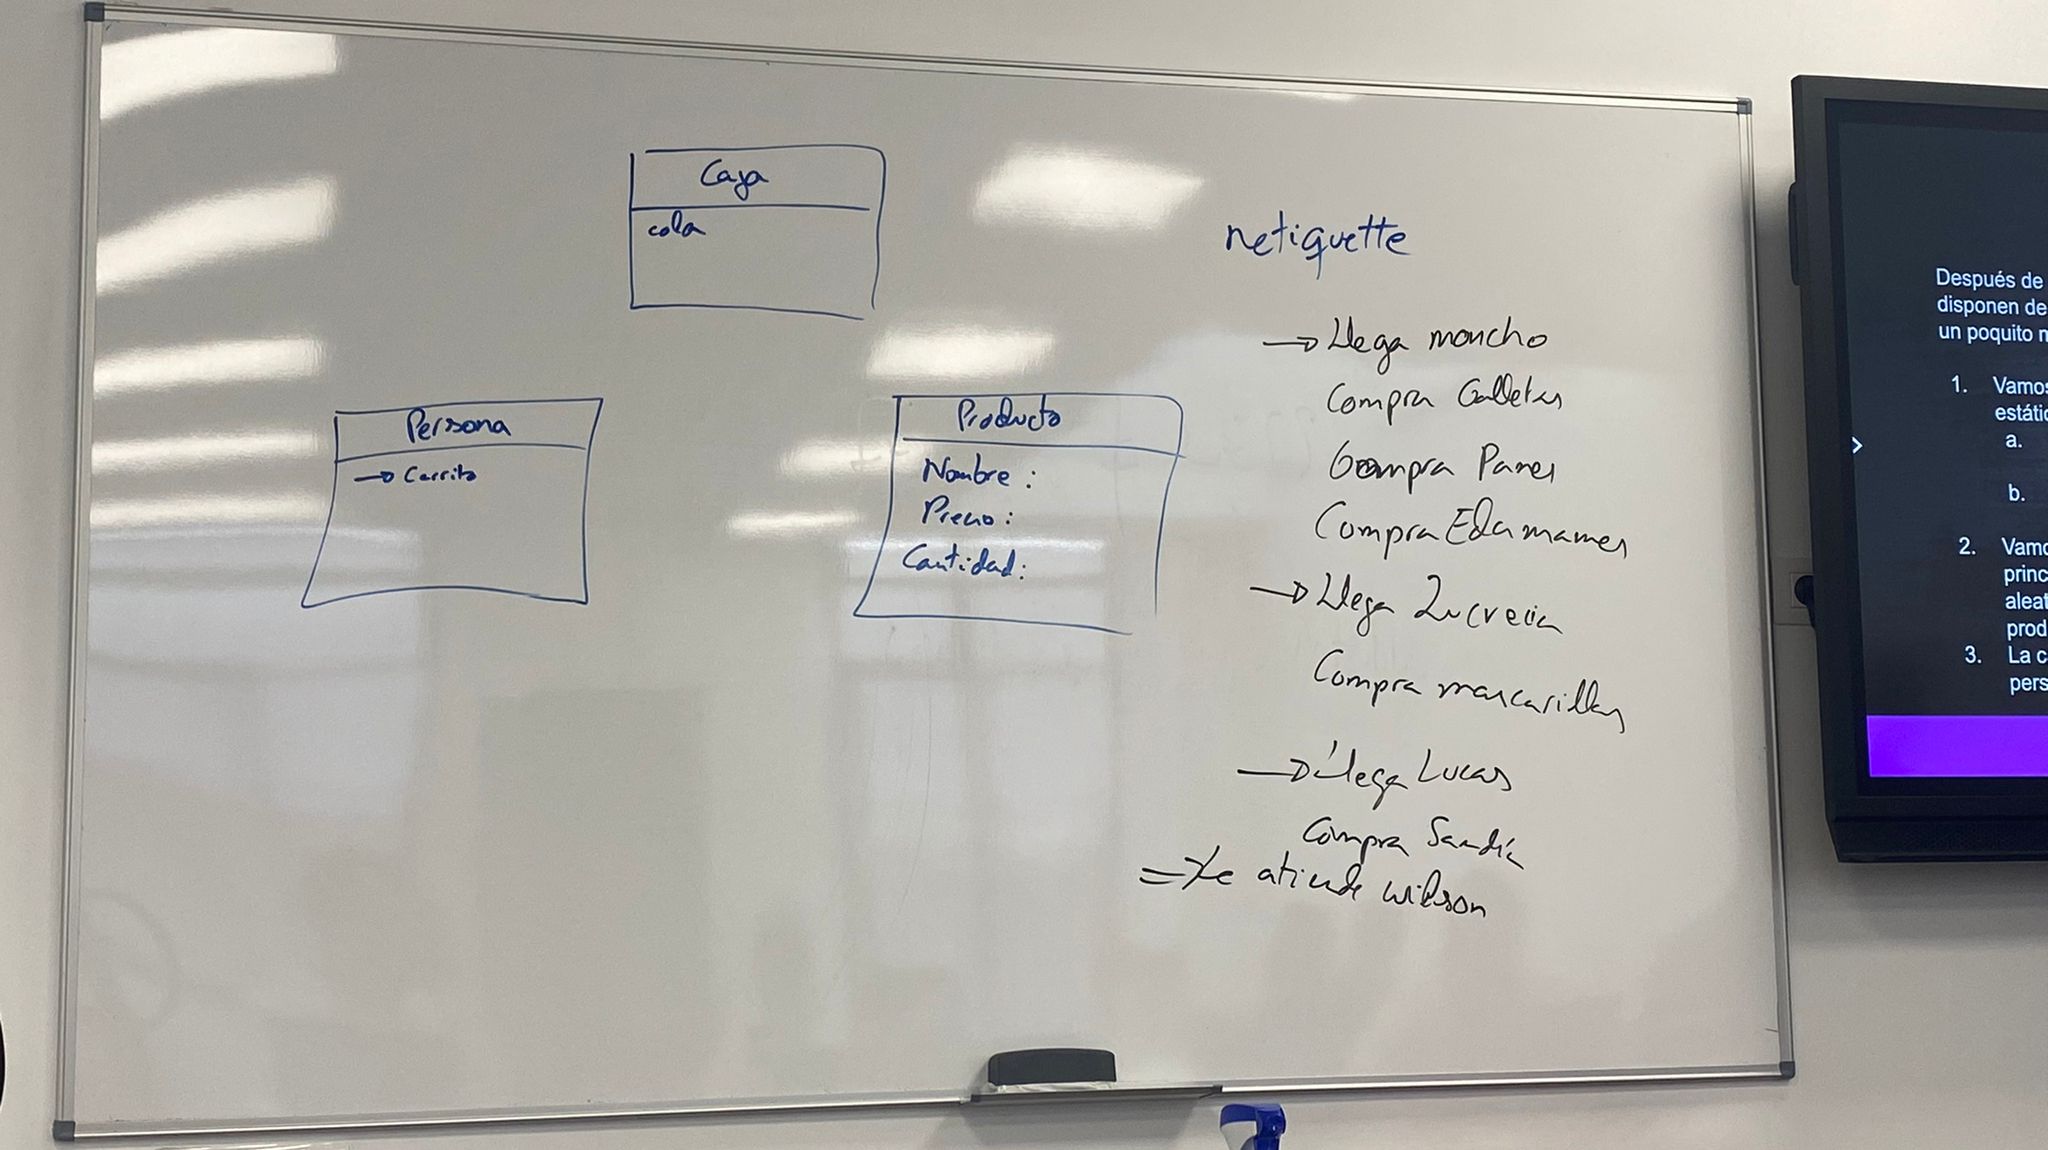 Caja
cola
Persona
→ Carrito
Producto
Nombre :
Precio :
Cantidad:
netiquette
→ Llega moncho
Compra Galletas
Compra Panes
Compra Edamames
→ Llega Lucrecia
Compra mascarillas
→ Llega Lucas
Compra Sandía
=> Le atiende wilson
Después de
disponen de
un poquito
1. Vamos
estátic
a.
b.
2. Vamo
princ
aleat
prod
3. La c
pers